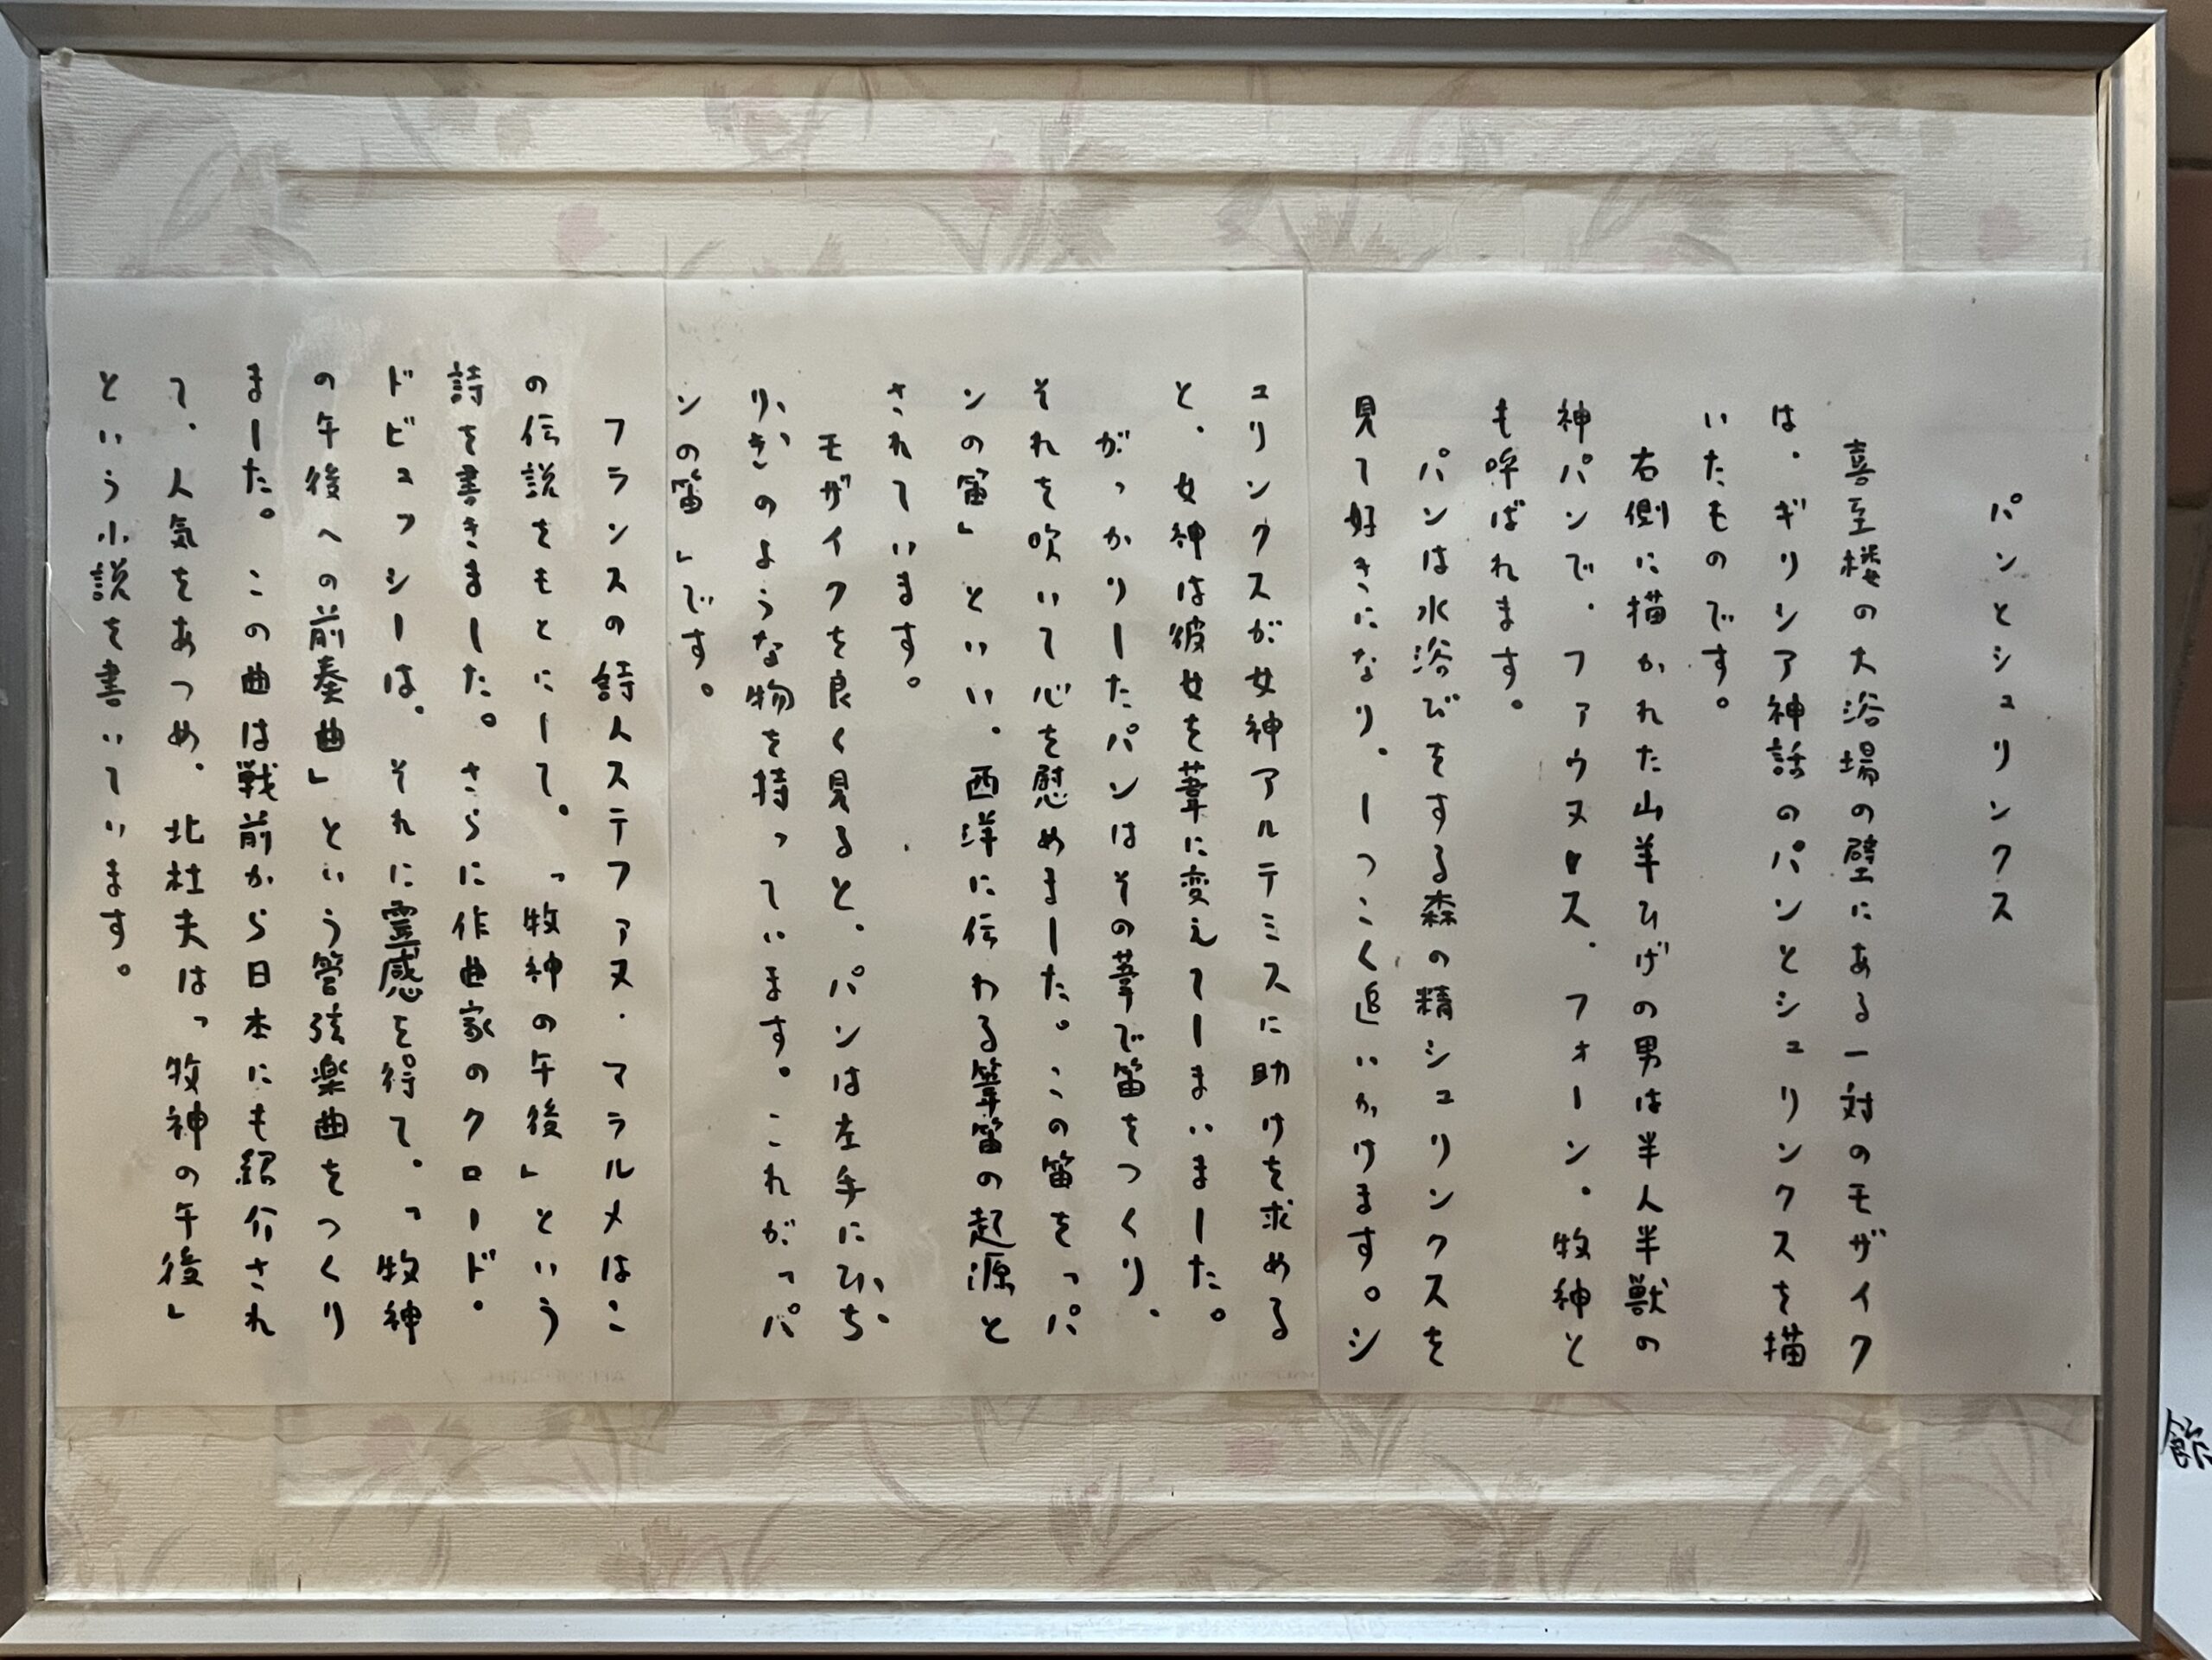 パンとシュリンクス
喜至楼の大浴場の壁にある一対のモザイク
は、ギリシア神話のパンとシュリンクスを描
いたものです。
右側に描かれた山羊ひげの男は半人半獣の
神パンで、ファウヌス、フォーン、牧神と
も呼ばれます。
パンは水浴びをする森の精シュリンクスを
見て好きになり、しつこく追いかけます。シ
ュリンクスが女神アルテミスに助けを求める
と、女神は彼女を葦に変えてしまいました。
がっかりしたパンはその葦で笛をつくり、
それを吹いて心を慰めました。この笛を「パ
ンの笛」といい、西洋に伝わる葦笛の起源と
されています。
モザイクを良く見ると、パンは左手にひち
りきのような物を持っています。これが「パ
ンの笛」です。
フランスの詩人ステファヌ・マラルメはこ
の伝説をもとにして、「牧神の午後」という
詩を書きました。さらに作曲家のクロード・
ドビュッシーは、それに霊感を得て、「牧神
の午後への前奏曲」という管弦楽曲をつくり
ました。この曲は戦前から日本にも紹介され
て、人気をあつめ、北杜夫は「牧神の午後」
という小説を書いています。
飾